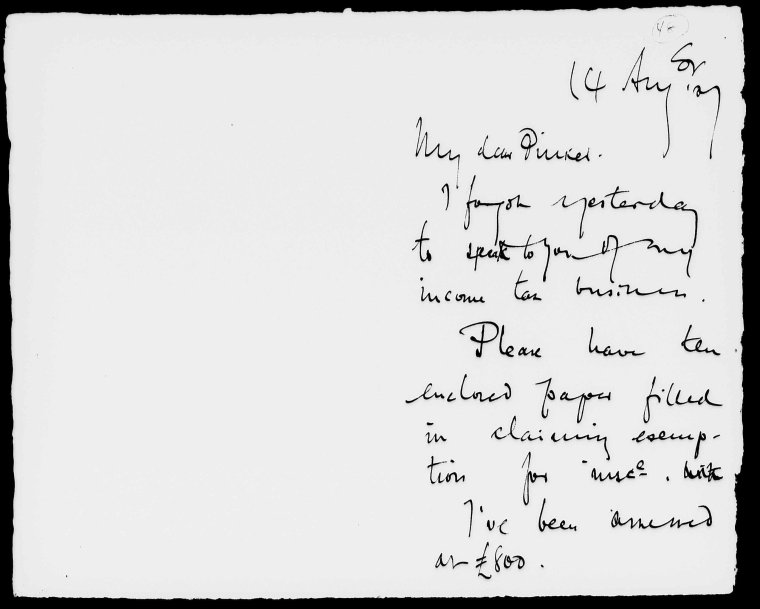 14 Aug '07
My dear Pinker.
I forgot yesterday
to speak to you of my
income tax business.
Please have the
enclosed paper filled
in claiming exemp-
tion for insce.
I've been assessed
at £800.